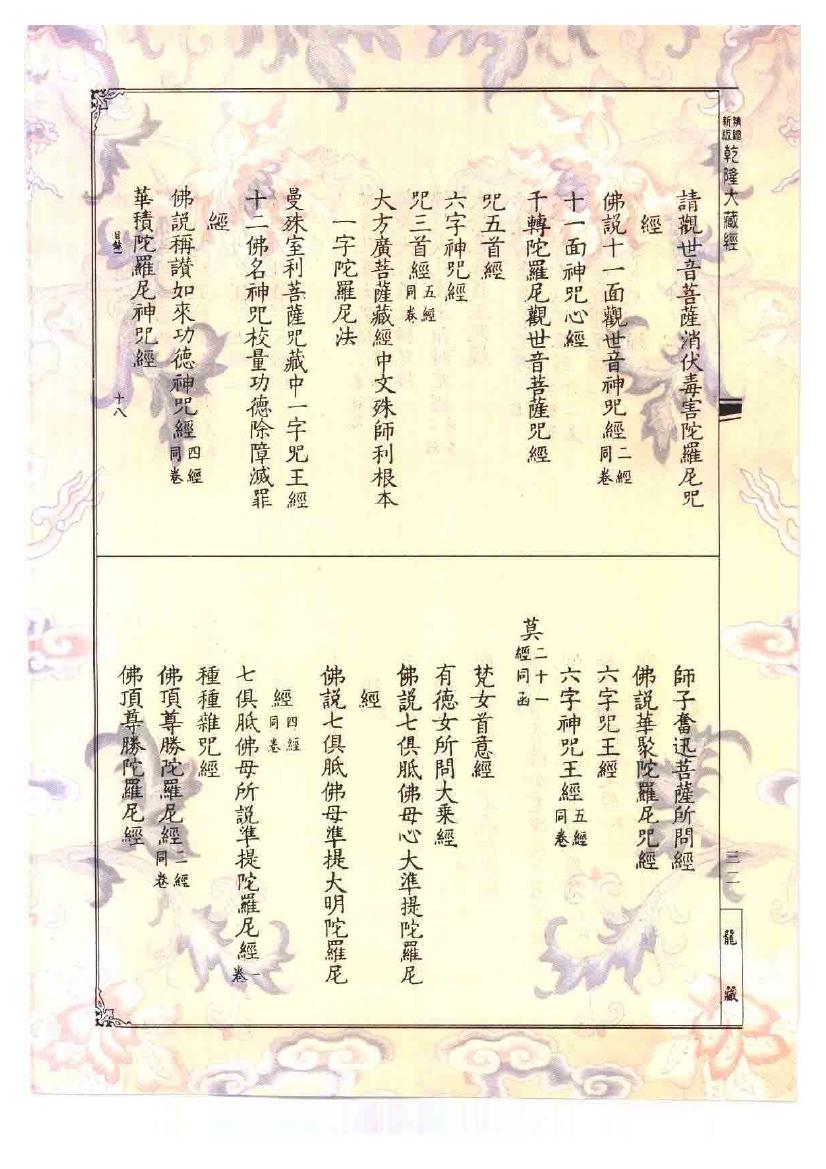 精縮新版 乾隆大藏經
請觀世音菩薩消伏毒害陀羅尼咒
經
佛說十一面觀世音神咒經二經同卷
十一面神咒心經
千轉陀羅尼觀世音菩薩咒經
咒五首經
六字神咒經
咒三首經五經同卷
大方廣菩薩藏經中文殊師利根本
一字陀羅尼法
曼殊室利菩薩咒藏中一字咒王經
十二佛名神咒校量功德除障滅罪
經
佛說稱讚如來功德神咒經四經同卷
華積陀羅尼神咒經
目錄一
十八
師子奮迅菩薩所問經
佛說華聚陀羅尼咒經
六字咒王經
六字神咒王經五經同卷
莫二十一經同函
梵女首意經
有德女所問大乘經
佛說七俱胝佛母心大準提陀羅尼
經
佛說七俱胝佛母準提大明陀羅尼
經四經同卷
七俱胝佛母所說準提陀羅尼經一卷
種種雜咒經
佛頂尊勝陀羅尼經二經同卷
佛頂尊勝陀羅尼經
三二
龍藏